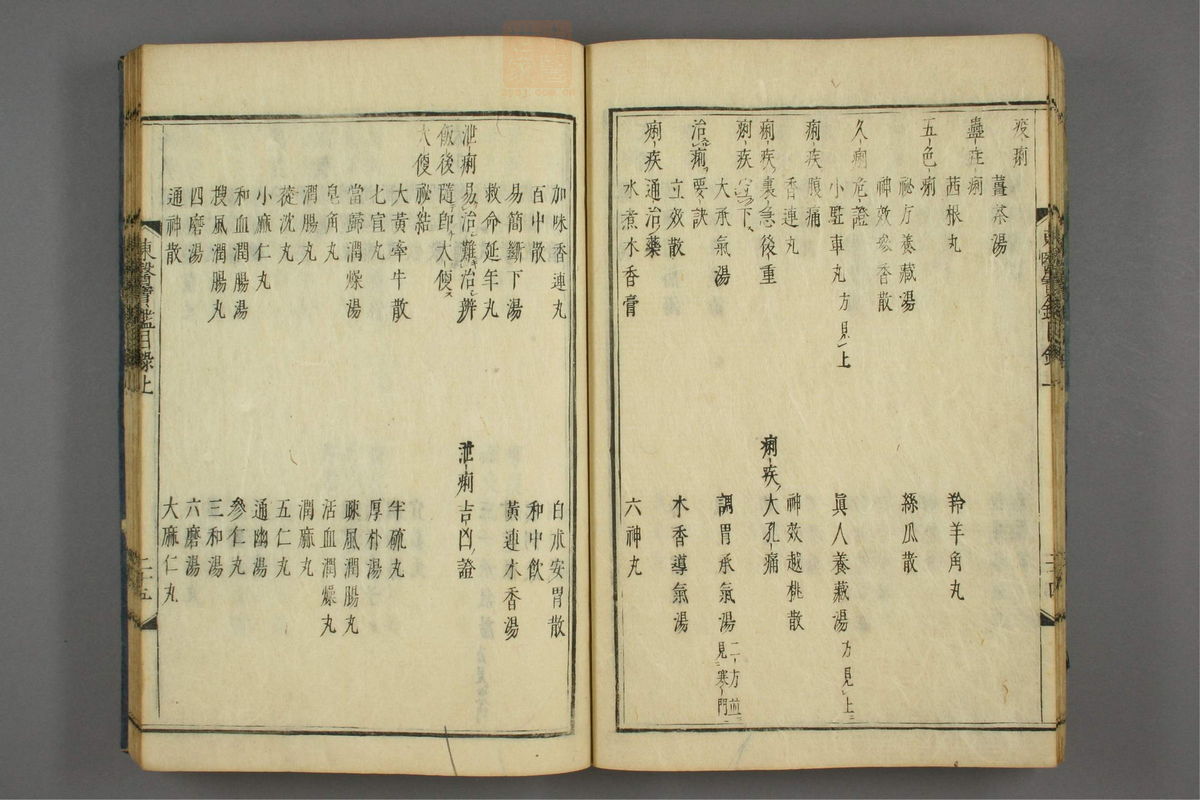 疫痢
薑茶湯
蠱疰痢
茜根丸
羚羊角丸
五色痢
秘方養藏湯
絲瓜散
神效參香散
久痢危證
小駐車丸方見上
眞人養藏湯方見上
痢疾腹痛
香連丸
神效越桃散
痢疾裏急後重
痢疾大孔痛
痢疾宜下
大承氣湯
調胃承氣湯二方並見寒門
治痢要訣
立效散
木香導氣湯
痢疾通治藥
水煮木香膏
六神丸
東醫寶鑑目錄上
二十四
加味香連丸
白朮安胃散
百中散
和中飮
易簡斷下湯
黃連木香湯
救命延年丸
泄痢易治難治辨
泄痢吉凶證
飯後隨卽大便
大便祕結
大黃牽牛散
半硫丸
七宣丸
厚朴湯
當歸潤燥湯
疎風潤腸丸
皂角丸
活血潤燥丸
潤腸丸
潤麻丸
蓯沈丸
五仁丸
小麻仁丸
通幽湯
和血潤腸湯
參仁丸
搜風潤腸丸
三和湯
四磨湯
六磨湯
通神散
大麻仁丸
東醫寶鑑目錄上
二十五